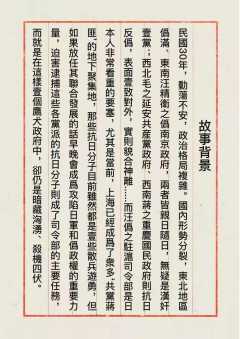 故事背景
民國30年，動蕩不安，政治格局複雜。國內形勢分裂，東北地區
僞滿、東南汪精衛之僞南京政府，兩者皆親日隨日，無疑是漢奸
壹黨；西北毛之延安共産黨政府、西南蔣之重慶國民政府則抗日
反僞，表面壹致對外，實則貌合神離……而汪僞之駐滬司令部是日
本人非常看重的要塞，尤其是當前，上海已經成爲了衆多共黨蔣
匪的地下聚集地，那些抗日分子目前雖然都是壹些散兵遊勇，但
如果放任其聯合發展的話早晚會成爲攻陷日軍和僞政權的重要力
量，迫害逮捕這些各黨派的抗日分子則成了司令部的主要任務，
而就是在這樣壹個鷹犬政府中，卻仍是暗藏洶湧、殺機四伏。